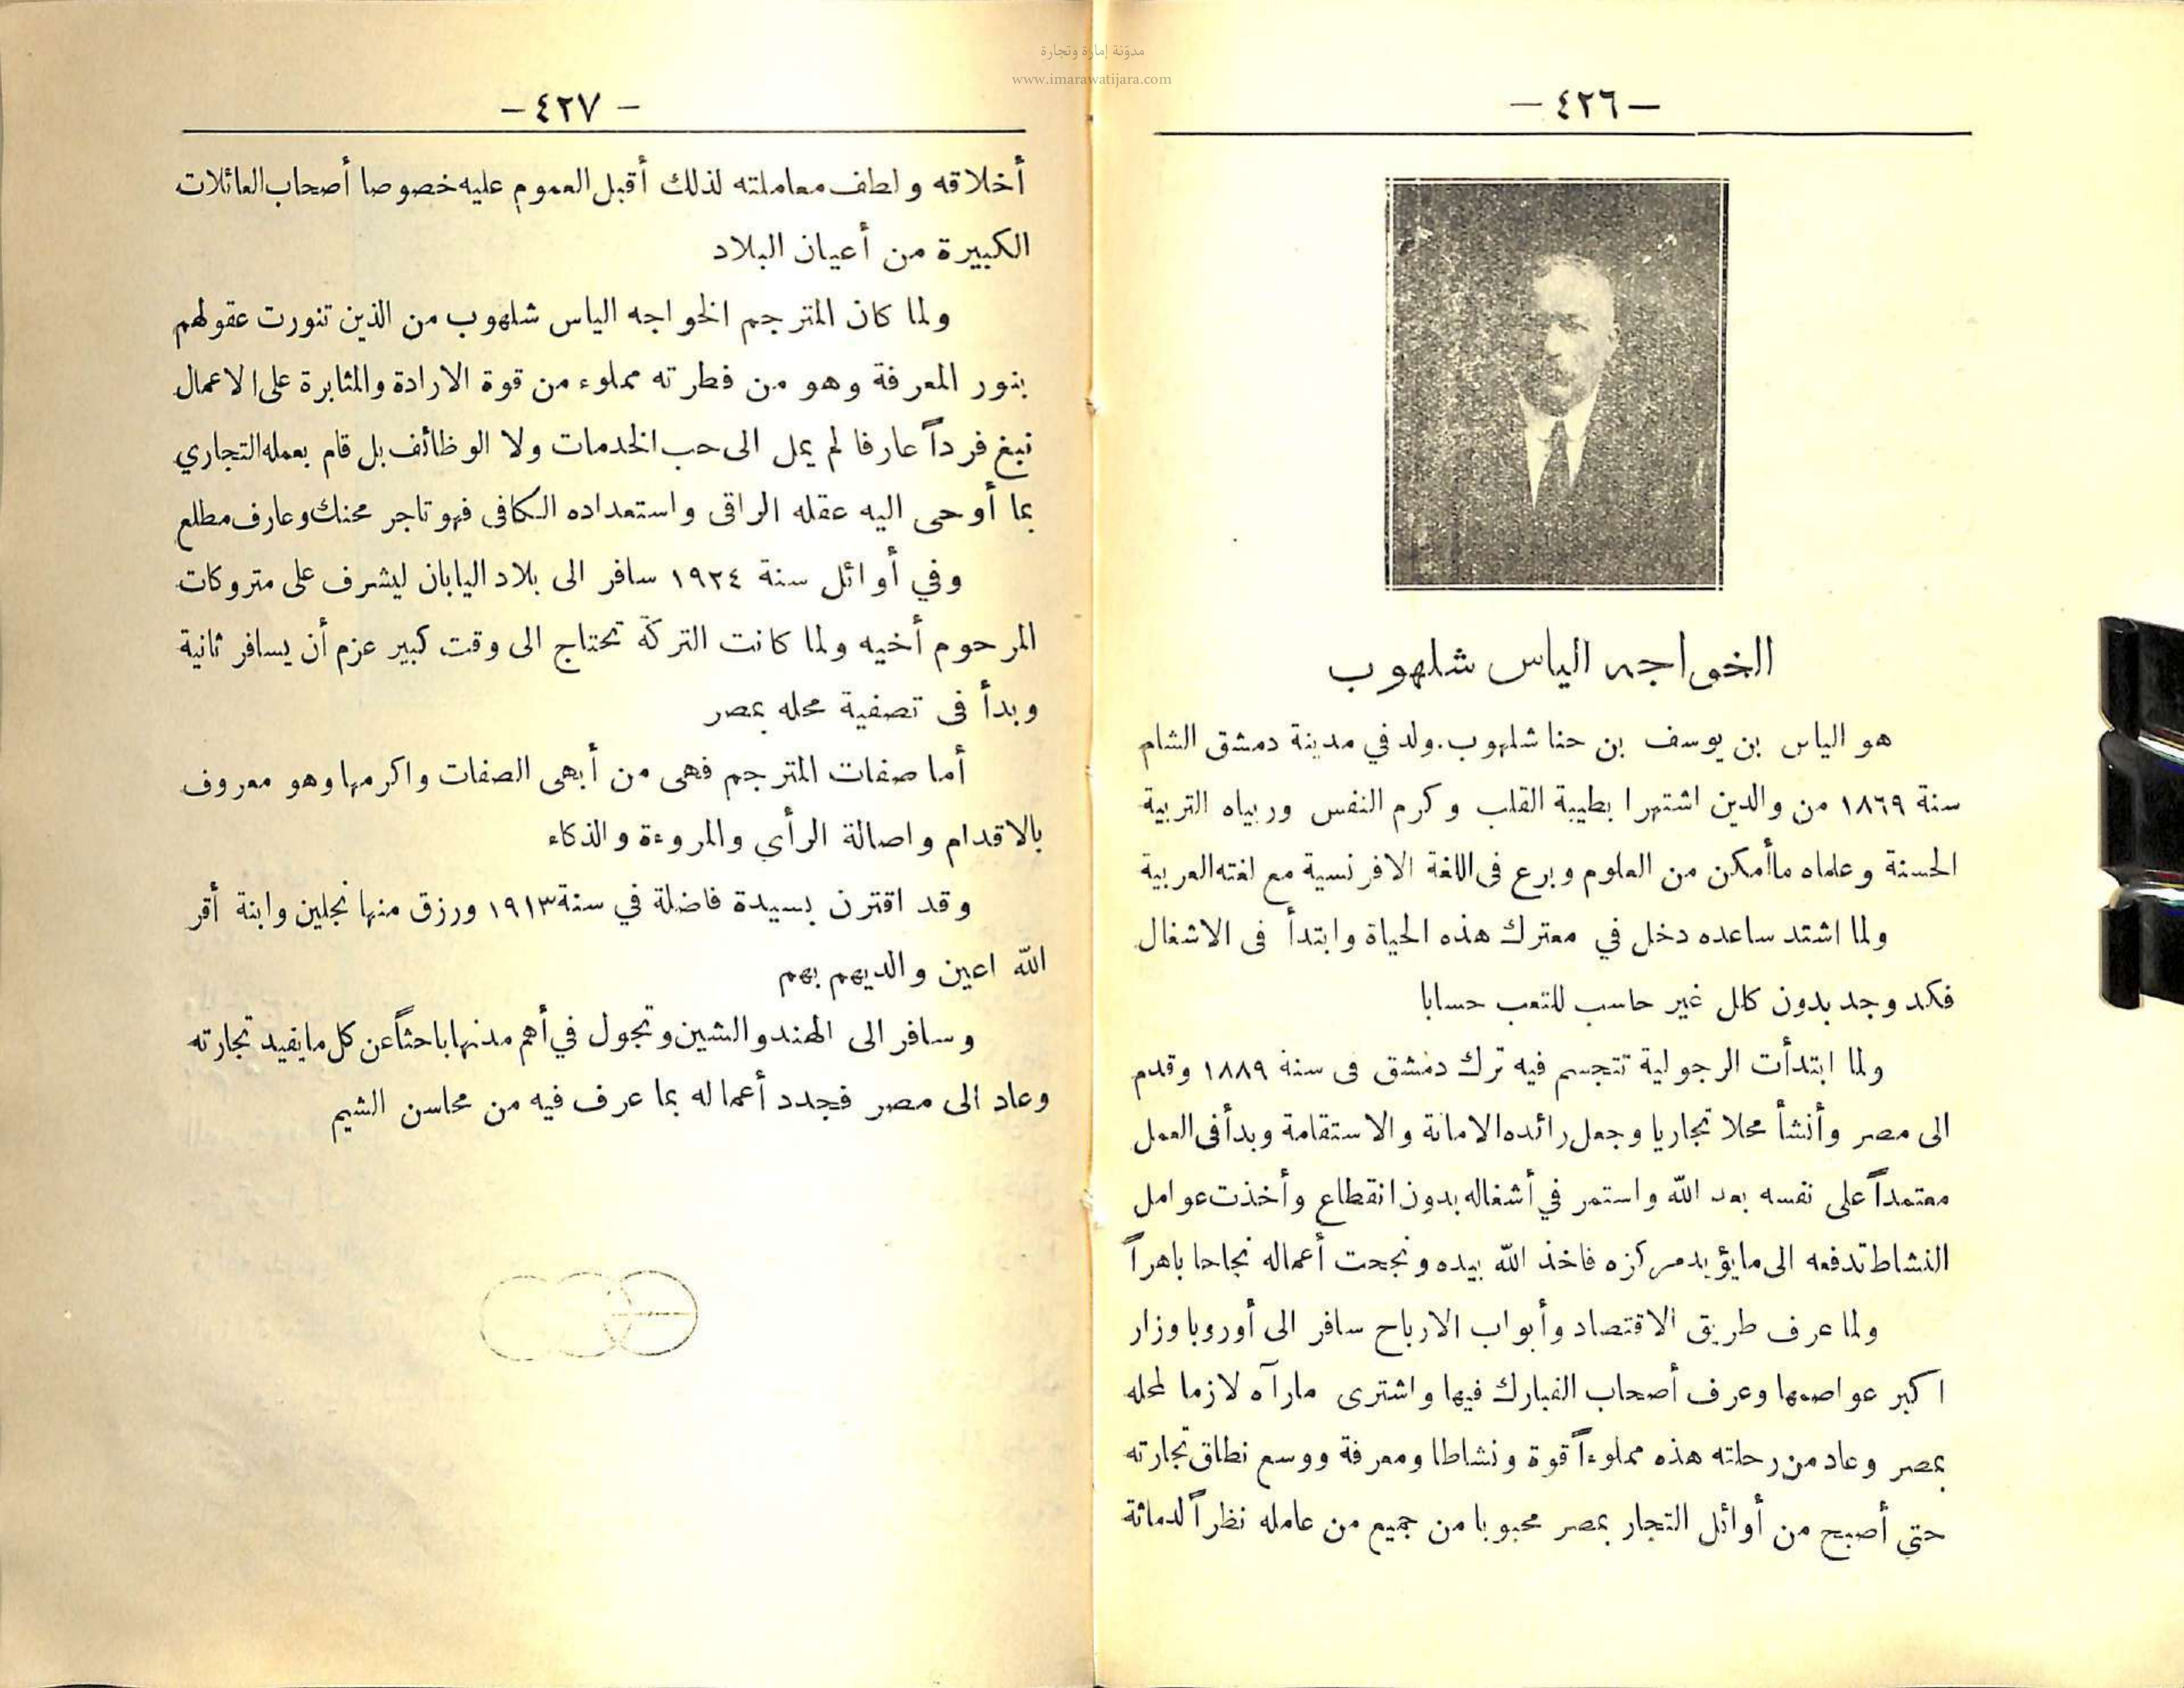 مدوّنة إمارة وتجارة
www.imarawatijara.com
— ٤٢٦ —
الخواجه الياس شلهوب
هو الياس بن يوسف بن حنا شلهوب. ولد في مدينة دمشق الشام
سنة ١٨٦٩ من والدين اشتهرا بطيبة القلب وكرم النفس وربياه التربية
الحسنة وعلماه ماأمكن من العلوم وبرع فى اللغة الافرنسية مع لغته العربية
ولما اشتد ساعده دخل في معترك هذه الحياة وابتدأ فى الاشغال
فكد وجد بدون كلل غير حاسب للتعب حسابا
ولما ابتدأت الرجولية تتجسم فيه ترك دمشق فى سنة ١٨٨٩ وقدم
الى مصر وأنشأ محلا تجاريا وجعل رائده الامانة والاستقامة وبدأ فى العمل
معتمداً على نفسه بعد الله واستمر في أشغاله بدون انقطاع وأخذت عوامل
النشاط تدفعه الى مايؤيد مركزه فاخذ الله بيده ونجحت أعماله نجاحا باهراً
ولما عرف طريق الاقتصاد وأبواب الارباح سافر الى أوروبا وزار
اكبر عواصمها وعرف أصحاب الفبارك فيها واشترى مارآه لازما لمحله
بمصر وعاد من رحلته هذه مملوءاً قوة ونشاطا ومعرفة ووسع نطاق تجارته
حتي أصبح من أوائل التجار بمصر محبوبا من جميع من عامله نظراً لدماثة
— ٤٢٧ —
أخلاقه ولطف معاملته لذلك أقبل العموم عليه خصوصا أصحاب العائلات
الكبيرة من أعيان البلاد
ولما كان المترجم الخواجه الياس شلهوب من الذين تنورت عقولهم
بنور المعرفة وهو من فطرته مملوء من قوة الارادة والمثابرة على الاعمال
نبغ فرداً عارفا لم يمل الى حب الخدمات ولا الوظائف بل قام بعمله التجاري
بما أوحى اليه عقله الراقى واستعداده الكافى فهو تاجر محنك وعارف مطلع
وفي أوائل سنة ١٩٢٤ سافر الى بلاد اليابان ليشرف على متروكات
المرحوم أخيه ولما كانت التركة تحتاج الى وقت كبير عزم أن يسافر ثانية
وبدأ فى تصفية محله بمصر
أما صفات المترجم فهى من أبهى الصفات واكرمها وهو معروف
بالاقدام واصالة الرأي والمروءة والذكاء
وقد اقترن بسيدة فاضلة في سنة ١٩١٣ ورزق منها نجلين وابنة أقر
الله اعين والديهم بهم
وسافر الى الهند والشين وتجول في أهم مدنها باحثاً عن كل مايفيد تجارته
وعاد الى مصر فجدد أعماله بما عرف فيه من محاسن الشيم